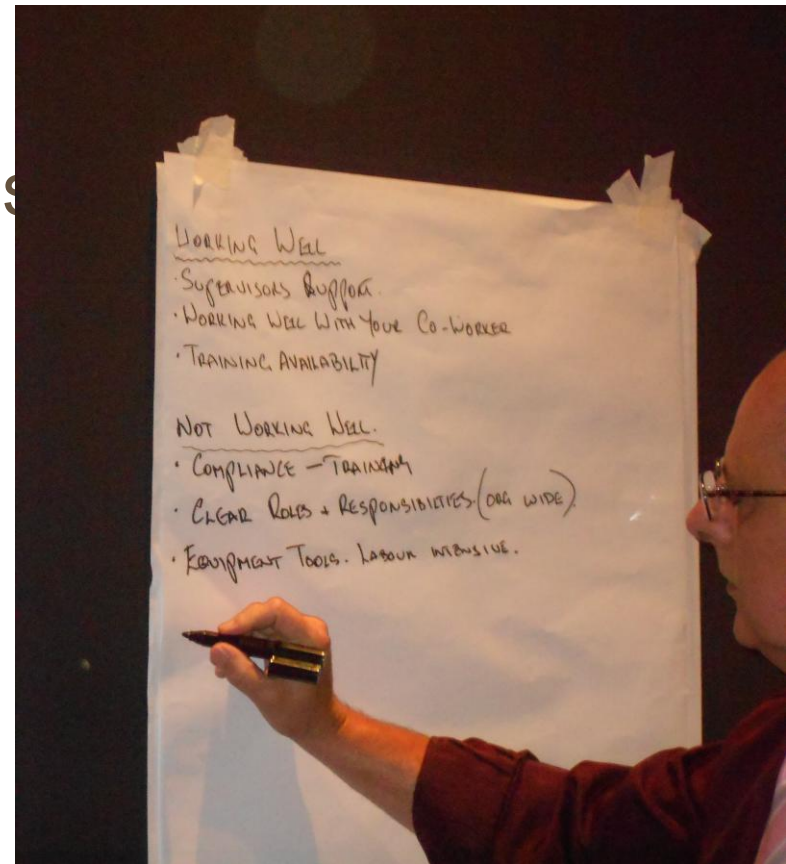 S
WORKING WELL
· SUPERVISORS SUPPORT.
· WORKING WELL WITH YOUR CO-WORKER
· TRAINING AVAILABILTY
NOT WORKING WELL.
· COMPLIANCE - TRAINING
· CLEAR ROLES + RESPONSIBILITIES. (ORG WIDE)
· EQUIPMENT TOOLS. LABOUR INTENSIVE.